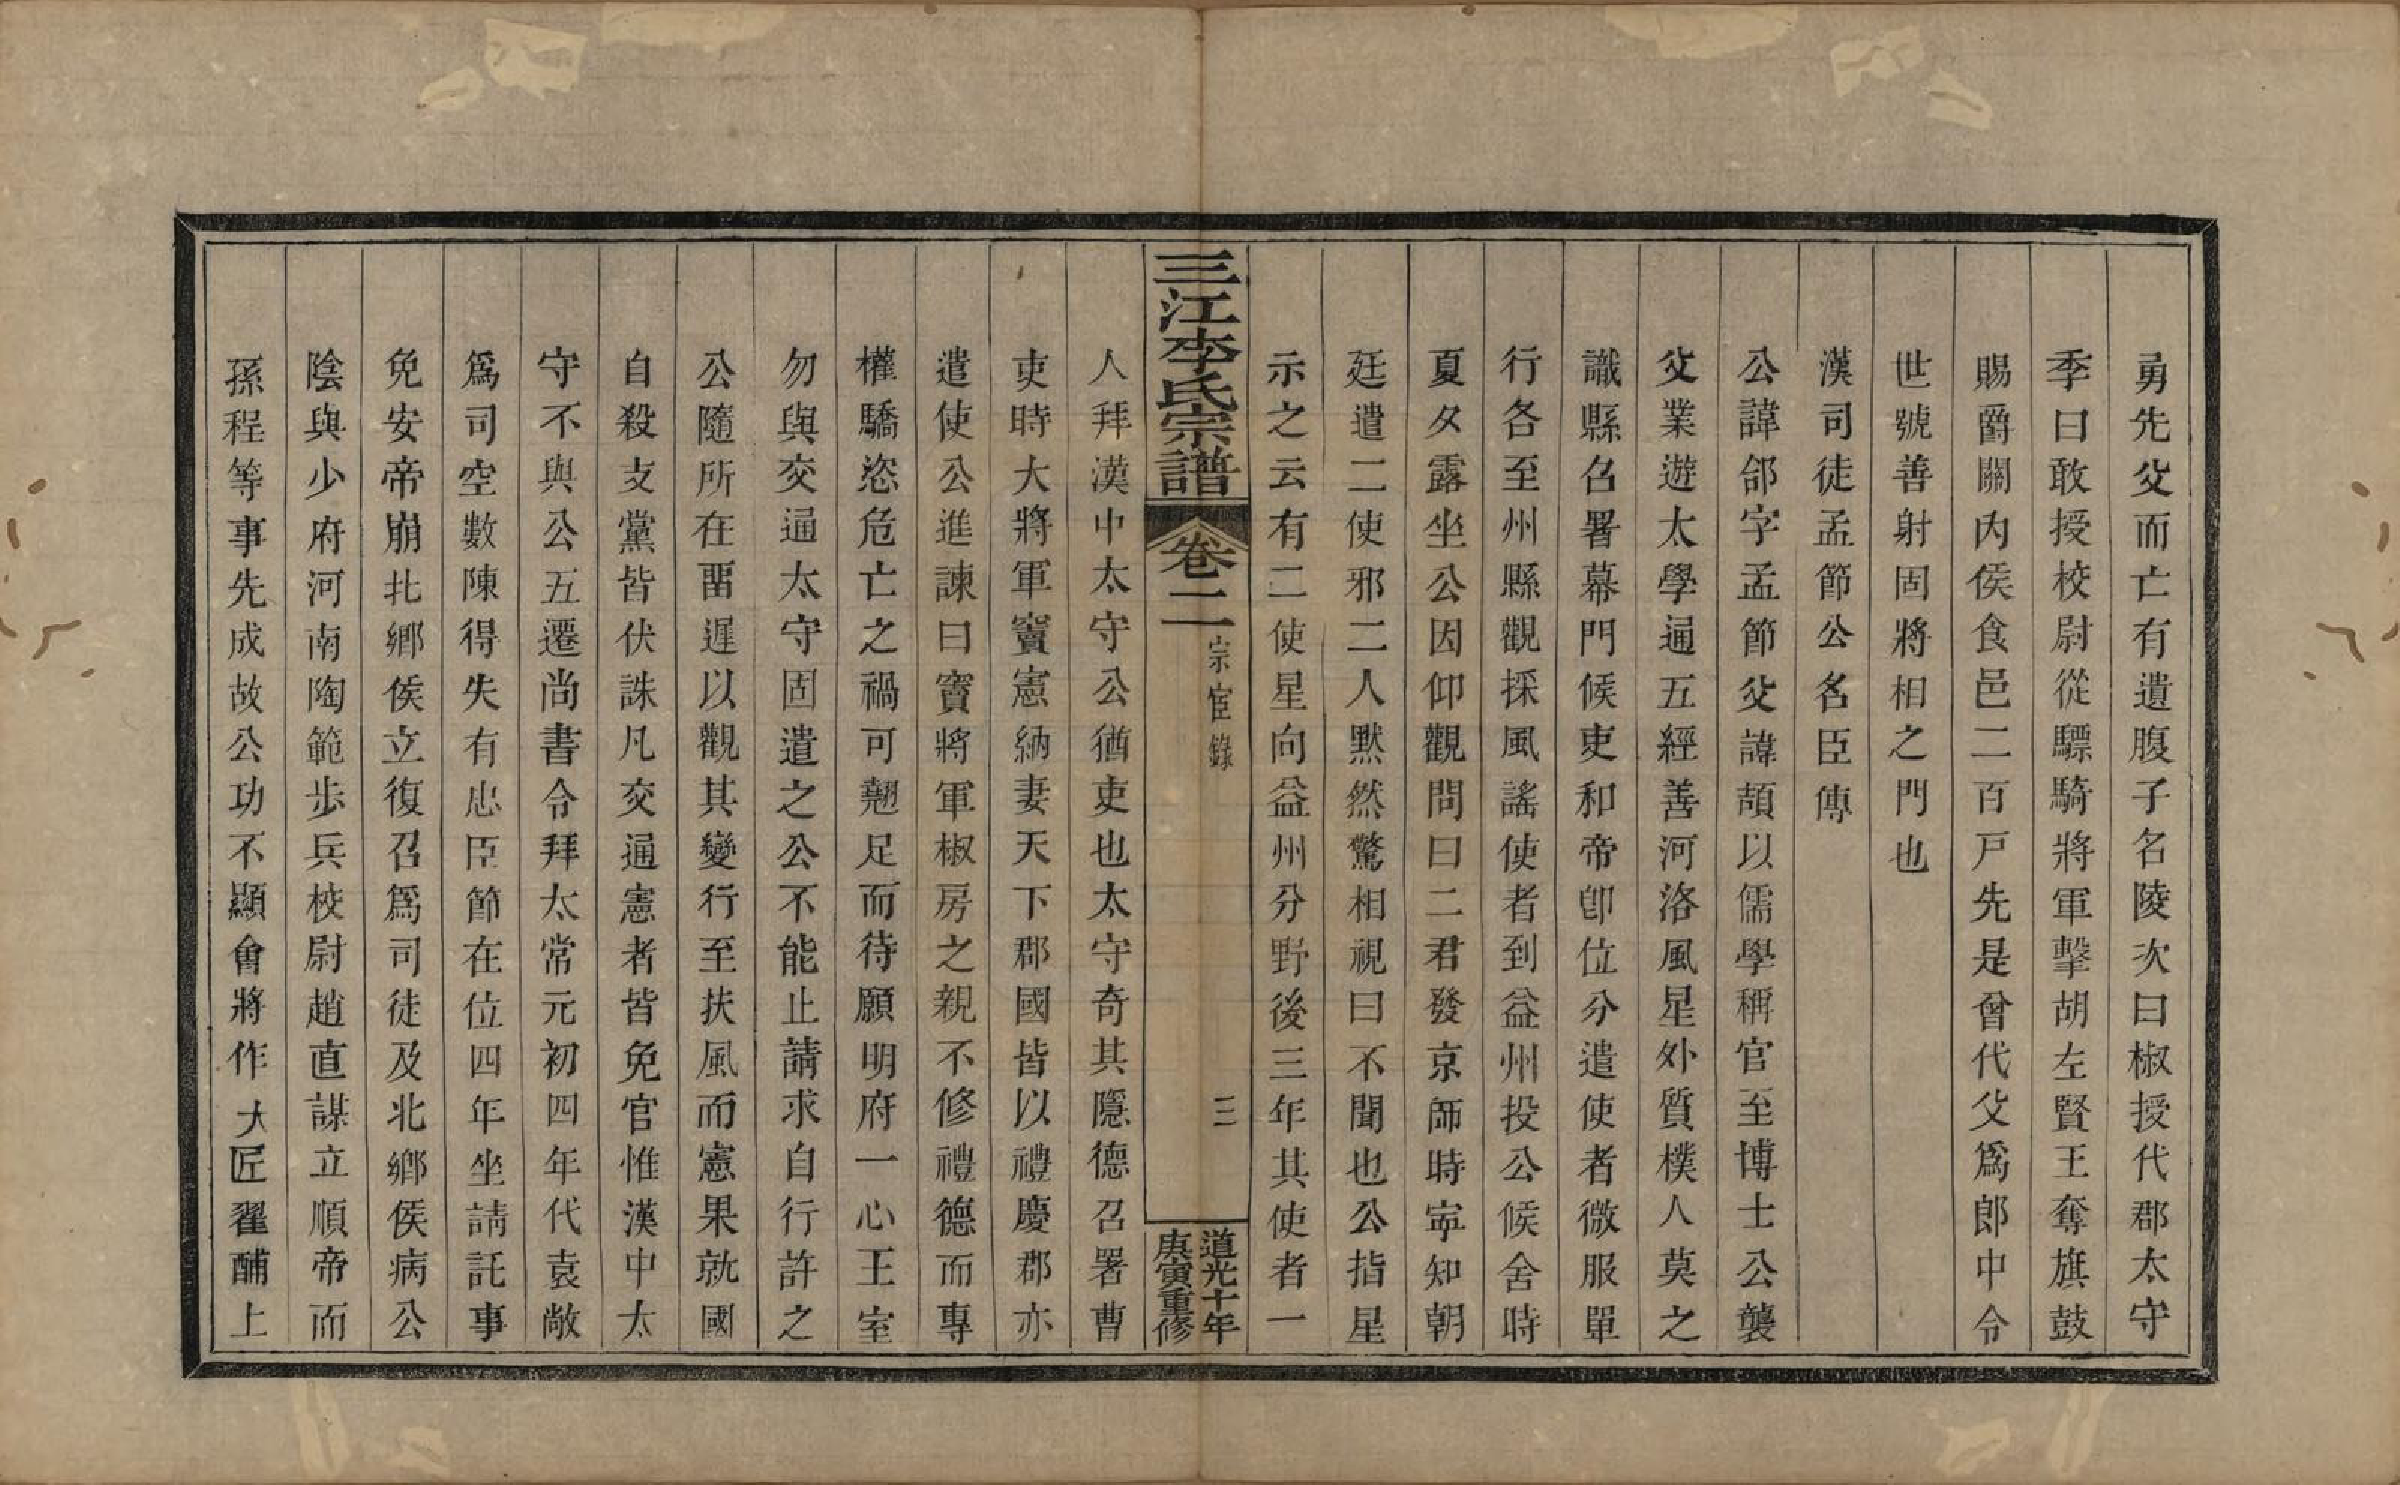 勇先父而亡有遺腹子名陵次曰椒授代郡太守
季曰敢授校尉從驃騎將軍擊胡左賢王奪旗鼓
賜爵關內侯食邑二百戸先是曾代父爲郎中令
世號善射固將相之門也
漢司徒孟節公名臣傳
公諱郃字孟節父諱頡以儒學稱官至博士公襲
父業遊太學通五經善河洛風星外質樸人莫之
識縣召署幕門候吏和帝卽位分遣使者微服單
行各至州縣觀採風謠使者到益州投公候舍時
夏夕露坐公因仰觀問曰二君發京師時寧知朝
廷遣二使邪二人默然驚相視曰不聞也公指星
示之云有二使星向益州分野後三年其使者一
三江李氏宗譜 卷二 宗宦錄 三 道光十年庚寅重修
人拜漢中太守公猶吏也太守奇其隱德召署曹
吏時大將軍竇憲納妻天下郡國皆以禮慶郡亦
遣使公進諫曰竇將軍椒房之親不修禮德而專
權驕恣危亡之禍可翹足而待願明府一心王室
勿與交通太守固遣之公不能止請求自行許之
公隨所在畱遲以觀其變行至扶風而憲果就國
自殺支黨皆伏誅凡交通憲者皆免官惟漢中太
守不與公五遷尚書令拜太常元初四年代袁敞
爲司空數陳得失有忠臣節在位四年坐請託事
免安帝崩北鄉侯立復召爲司徒及北鄉侯病公
陰與少府河南陶範步兵校尉趙直謀立順帝而
孫程等事先成故公功不顯會將作大匠翟酺上